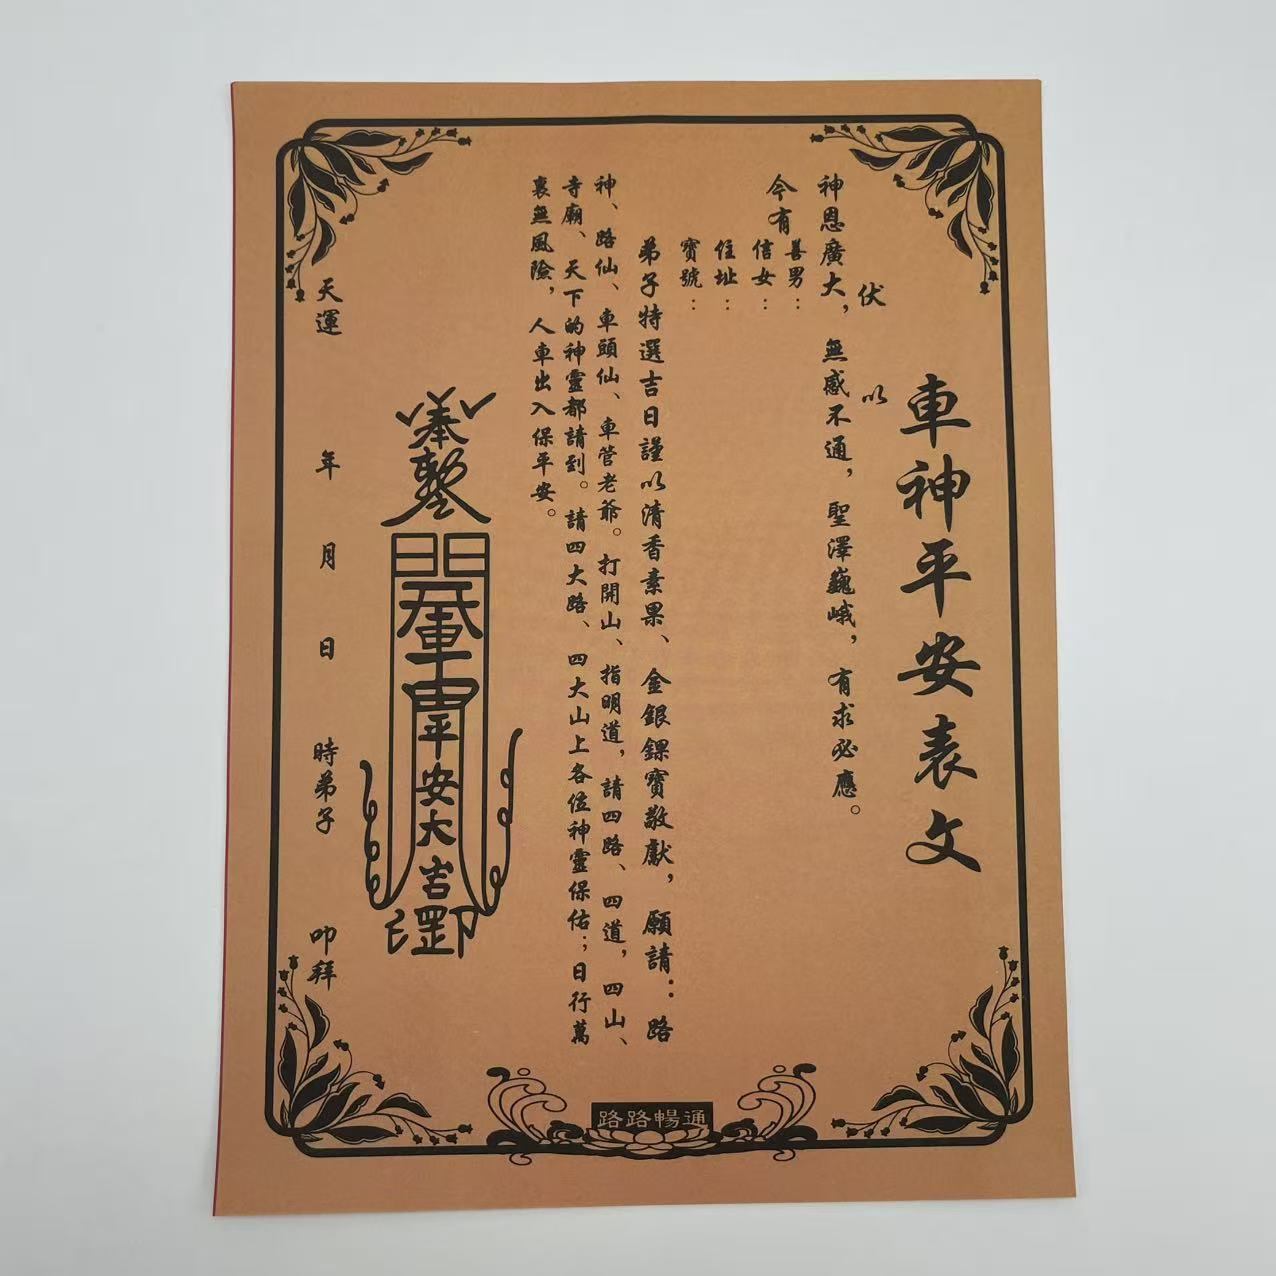 車神平安表文
伏以
神恩廣大，無感不通，聖澤巍峨，有求必應。
今有善男：
信女：
住址：
寶號：
弟子特選吉日謹以清香素果、金銀錁寶敬獻，願請：路
神、路仙、車頭仙、車管老爺。打開山、指明道，請四路、四道，四山、
寺廟、天下的神靈都請到。請四大路、四大山上各位神靈保佑；日行萬
裏無風險，人車出入保平安。
奉
平安大吉
罡
天運 年 月 日 時弟子 叩拜
路路暢通